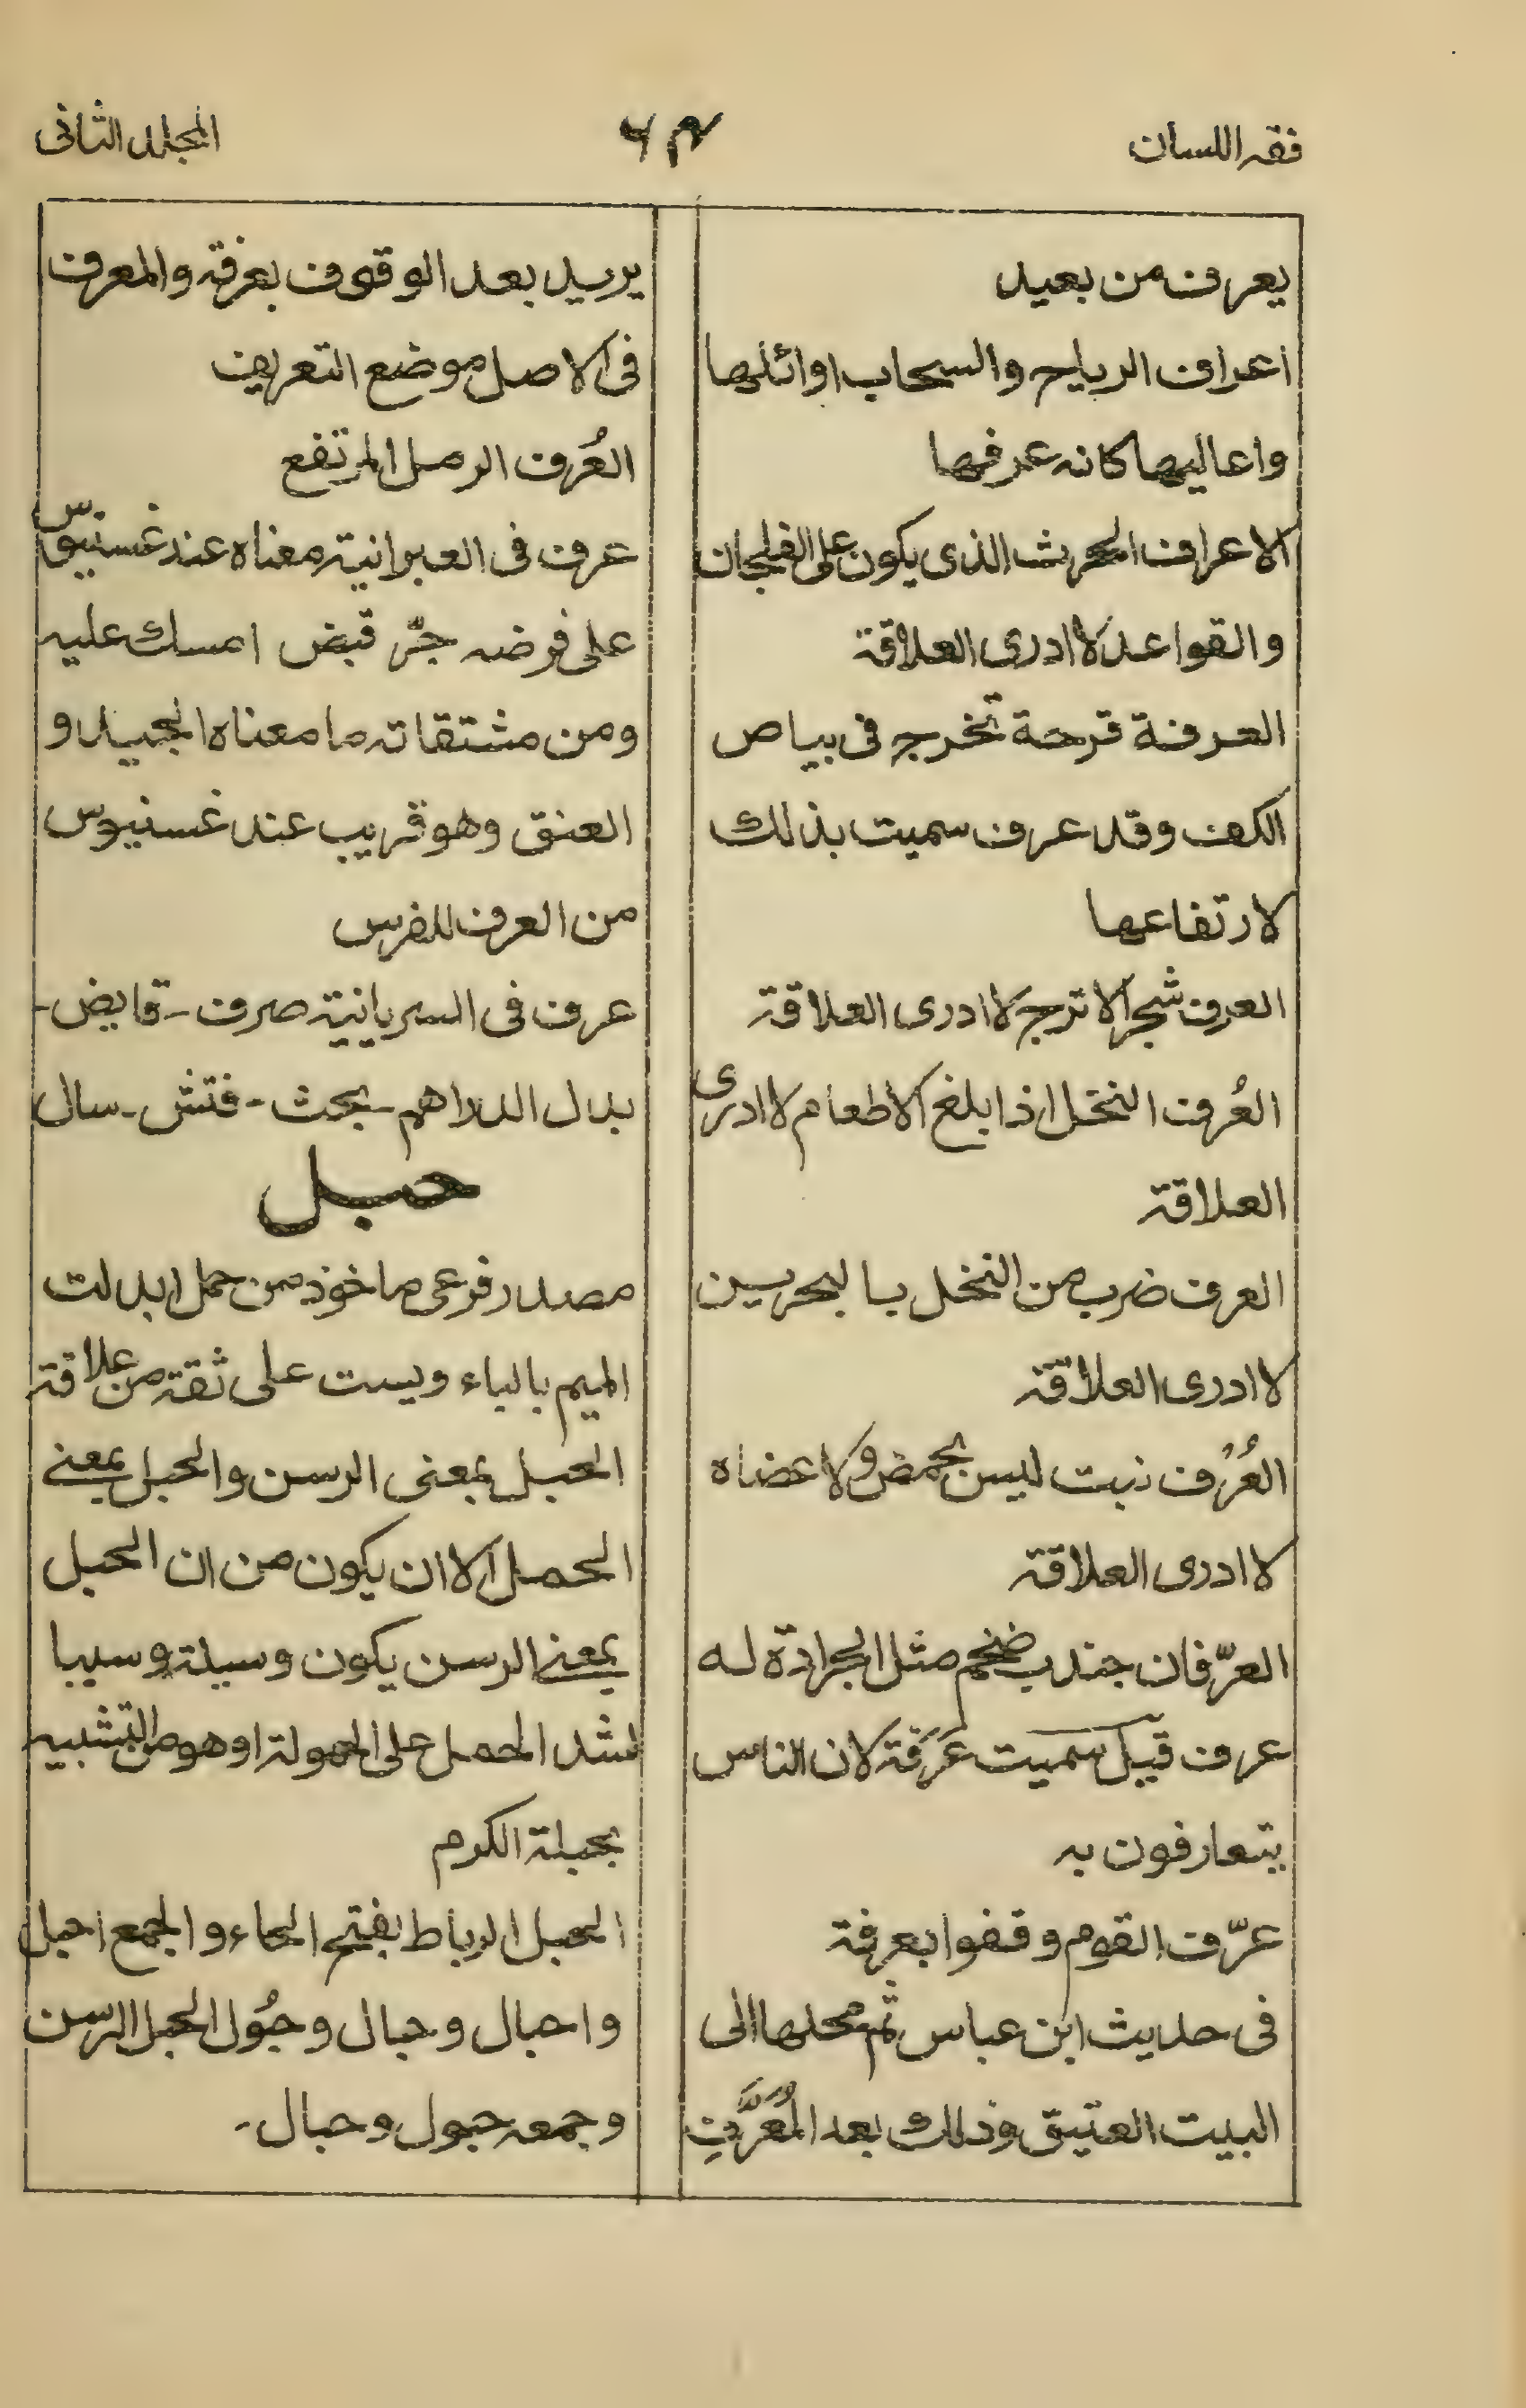 فقه اللسان
المجلد الثانى
يعرف من بعيد
اعراف الرياح والسحاب اوائلها
واعاليها كانه عرفها
الاعراف الحرث الذى يكون على الفلجان
والقواعد لا ادرى العلاقة
العرفة قرحة تخرج فى بياض
الكف وقد عرف سميت بذلك
لارتفاعها
العرف شجر الاترج لا ادرى العلاقة
العُرف النخل اذا بلغ الاطعام لا ادرى
العلاقة
العرف ضرب من النخل بالبحرين
لا ادرى العلاقة
العُرُف نبت ليس بحمض ولا عضاه
لا ادرى العلاقة
العرّفان جندب ضخم مثل الجرادة له
عرف قيل سميت عَرَفة لان الناس
يتعارفون به
عرّف القوم وقفوا بعرفة
فى حديث ابن عباس ثم محلها الى
البيت العتيق وذلك بعد المُعَرَّفِ
يريد بعد الوقوف بعرفة والمعرف
فى الاصل موضع التعريف
العُرف الرمل المرتفع
عرف فى العبرانية معناه عند غسنيوس
على فرضه جرّ قبض امسك عليه
ومن مشتقاته ما معناه الجيد و
العنق وهو قريب عند غسنيوس
من العرف للفرس
عرف فى السريانية صرف - قايض -
بدل الدراهم - بحث - فتش - سال
حبل
مصدر فرعى ماخوذ من حمل ابدلت
الميم بالباء وليست على ثقة من علاقة
الحبل بمعنى الرسن والحبل بمعنى
الحمل الا ان يكون من ان الحبل
بمعنى الرسن يكون وسيلة وسببا
لشد الحمل على الحمولة او هو من التشبيه
بحبلة الكرم
الحبل الرباط بفتح الحاء والجمع احبل
واحبال وحبال وحبُول الحبل الرسن
وجمعه حبول وحبال -